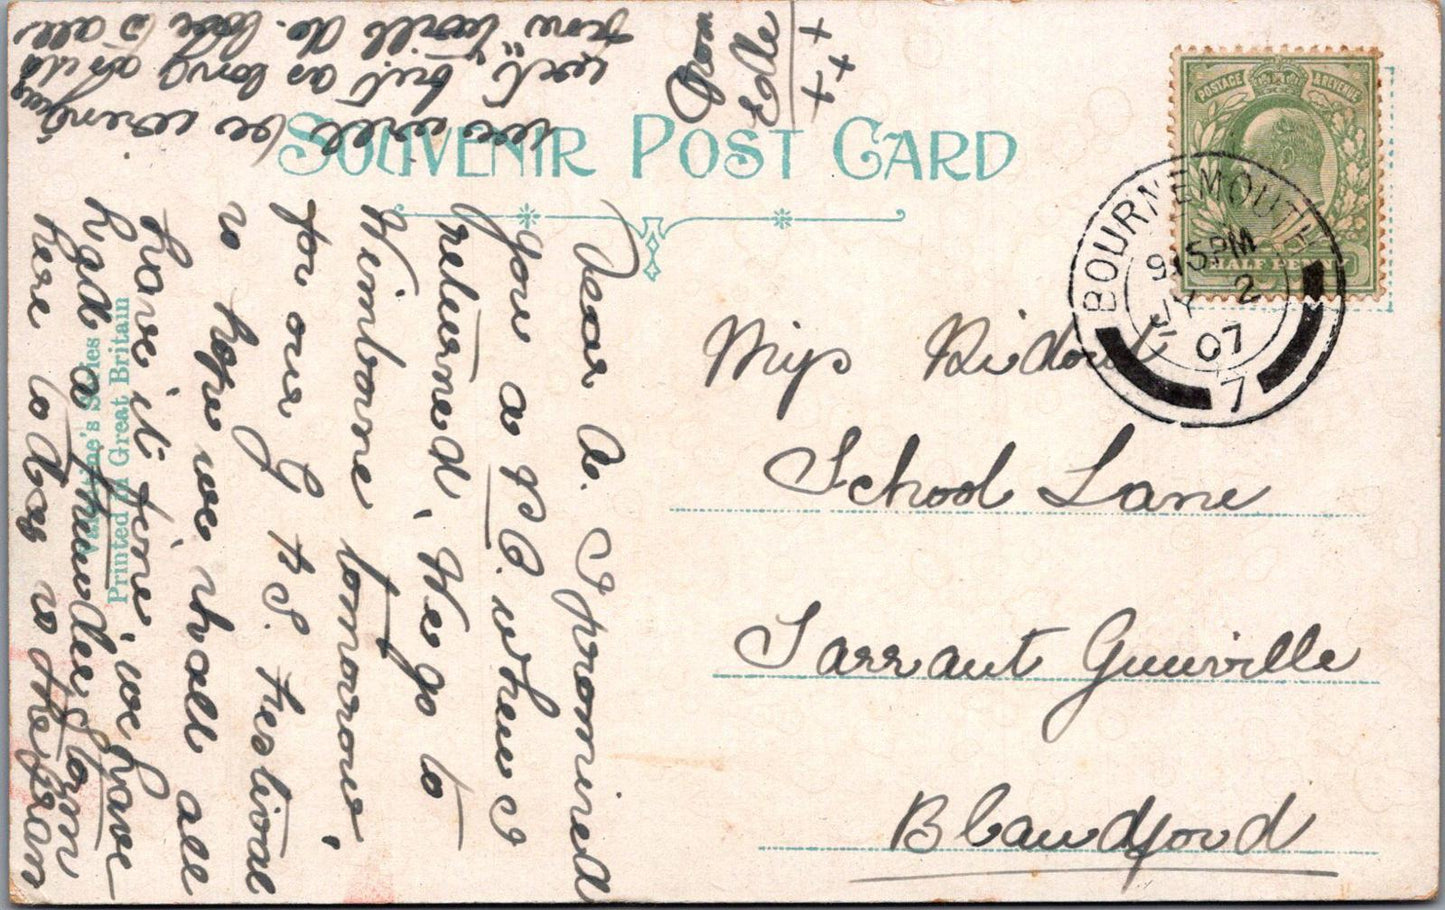 SOUVENIR POST CARD
POSTAGE & REVENUE
HALF PENNY
BOURNEMOUTH
9.15PM
JY 2
07
7
Miss Ridout
School Lane
Tarrant Gunville
Blandford
Valentine's Series
Printed in Great Britain
Dear A. I promised
you a P.C. when I
returned. We go to
Wimborne tomorrow,
for our G F.S. Festival
so hope we shall all
have it fine, we have
had a thunderstorm
here to day so the
you will be writing
but as long as
time will do. love to all
From
Edie